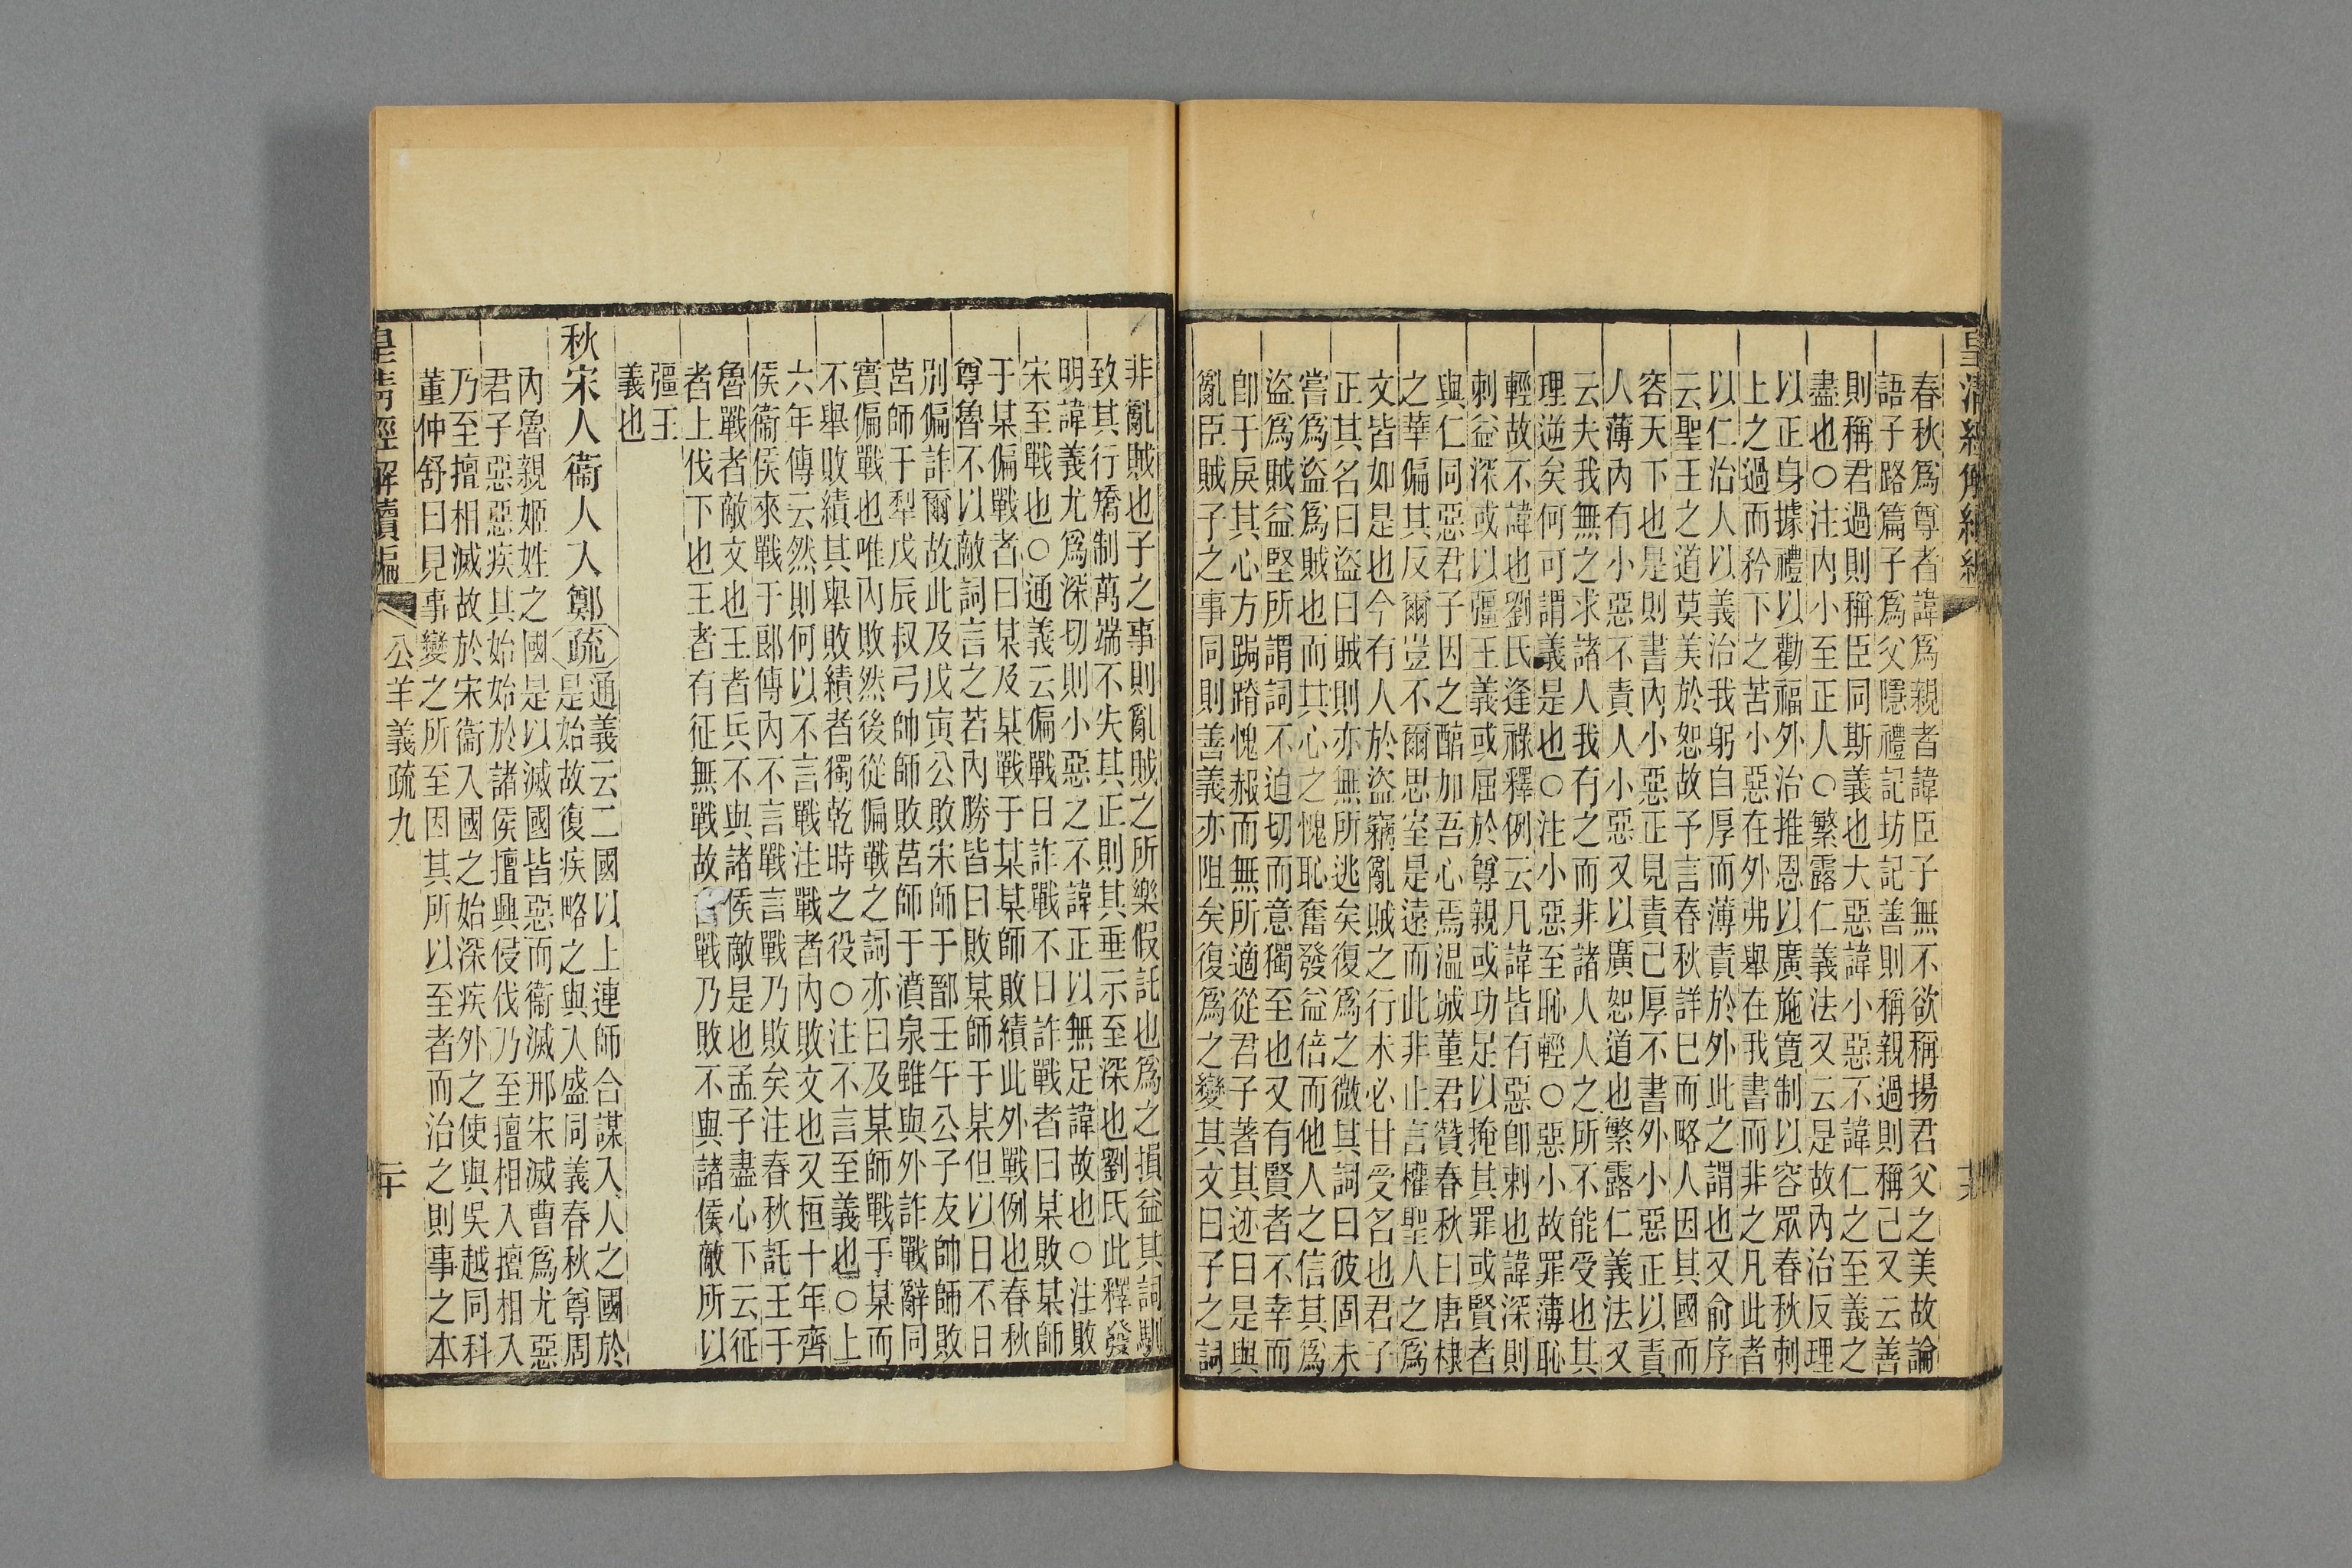 皇清經解續編
春秋爲尊者諱爲親者諱臣子無不欲稱揚君父之美故論
語子路篇子爲父隱禮記坊記善則稱親過則稱己又云善
則稱君過則稱臣同斯義也大惡諱小惡不諱仁之至義之
盡也○注內小至正人○繁露仁義法又云是故內治反理
以正身據禮以勸福外治推恩以廣施寬制以容眾春秋刺
上之過而矜下之苦小惡在外弗舉在我書而非之凡此者
以仁治人以義治我躬自厚而薄責於外此之謂也又俞序
云聖王之道莫美於恕故予言春秋詳己而略人因其國而
容天下也是則書內小惡正見責己厚不書外小惡正以責
人薄內有小惡不責人小惡又以廣恕道也繁露仁義法又
云夫我無之求諸人我有之而非諸人人之所不能受也其
理逆矣何可謂義是也○注小惡至恥輕○惡小故罪薄恥
輕故不諱也劉氏逢祿釋例云凡諱皆有惡卽刺也諱深則
刺益深或以彊王義或屈於尊親或功足以掩其罪或賢者
與仁同惡君子因之醕加吾心焉溫城董君贊春秋曰唐棣
之華偏其反爾豈不爾思室是遠而此非止言權聖人之爲
文皆如是也今有人於盜竊亂賊之行未必甘受名也君子
正其名曰盜曰賊則亦無所逃矣復爲之微其詞曰彼固未
嘗爲盜爲賊也而其心之愧恥奮發益倍而他人之信其爲
盜爲賊益堅所謂詞不迫切而意獨至也又有賢者不幸而
卽于戾其心方跼蹐愧赧而無所適從君子著其迹曰是與
亂臣賊子之事同則善義亦阻矣復爲之變其文曰子之詞
非亂賊也子之事則亂賊之所樂假託也爲之損益其詞馴
致其行矯制萬端不失其正則其垂示至深也劉氏此釋發
明諱義尤爲深切則小惡之不諱正以無足諱故也○注敗
宋至戰也○通義云偏戰日詐戰不日詐戰者曰某敗某師
于某偏戰者曰某及某戰于某某師敗績此外戰例也春秋
尊魯不以敵詞言之若內勝皆曰敗某師于某但以日不日
別偏詐爾故此及戊寅公敗宋師于鄑壬午公子友帥師敗
莒師于犁戊辰叔弓帥師敗莒師于濆泉雖與外詐戰辭同
實偏戰也唯內敗然後從偏戰之詞亦曰及某師戰于某而
不舉敗績其舉敗績者獨乾時之役○注不言至義也○上
六年傳云然則何以不言戰注戰者內敗文也又桓十年齊
侯衞侯來戰于郎傳內不言戰言戰乃敗矣注春秋託王于
魯戰者敵文也王者兵不與諸侯敵是也孟子盡心下云征
者上伐下也王者有征無戰故言戰乃敗不與諸侯敵所以
彊王
義也
秋宋人衞人入鄭疏通義云二國以上連師合謀入人之國於
是始故復疾略之與入盛同義春秋尊周
內魯親姬姓之國是以滅國皆惡而衞滅邢宋滅曹爲尤惡
君子惡惡疾其始始於諸侯擅興侵伐乃至擅相入擅相入
乃至擅相滅故於宋衞入國之始深疾外之使與吳越同科
董仲舒曰見事變之所至因其所以至者而治之則事之本
皇清經解續編 公羊義疏九 二十